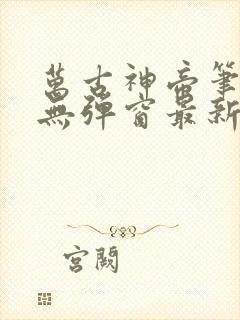 萬古神帝筆
無彈窗最新
宮闕